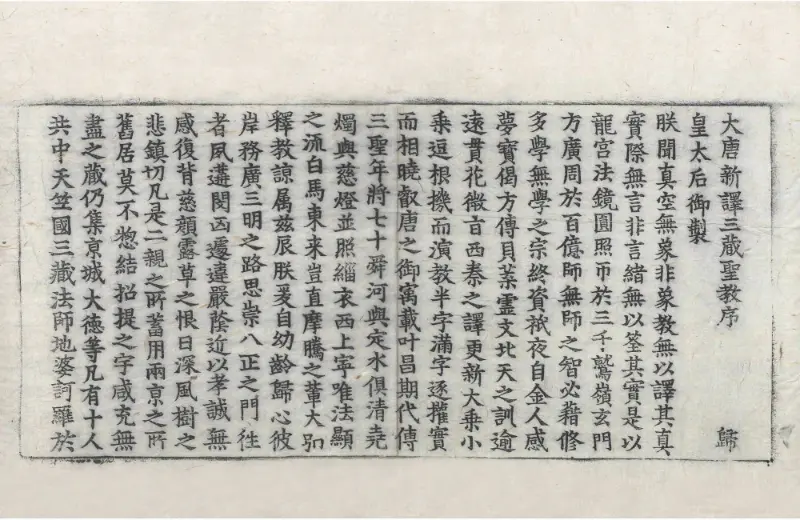 大唐新譯三蔵聖教序
皇太后御製　歸
朕聞真空無象非象教無以譯其真
實際無言非言緒無以筌其實是以
龍宮法鏡圓照帀於三千鷲嶺玄門
方廣周於百億師無師之智必藉修
多學無學之宗終資祇夜自金人感
夢寶偈方傳貝葉靈文北天之訓逾
遠貫花微言西秦之譯更新大乘小
乘逗根機而演教半字滿字逐權實
而相曉叡唐之御寓載叶昌期代傳
三聖年將七十舜河與定水俱清堯
燭與慈燈並照緇衣西上寧唯法顯
之流白馬東来豈直摩騰之軰大弘
釋教諒属兹辰朕爰自幼齡歸心彼
岸務廣三明之路思崇八正之門往
者夙遘閔凶遽違嚴蔭近以孝誠無
感復背慈顔露草之恨日深風樹之
悲鎮切凡是二親之所蓄用兩亰之所
舊居莫不惣結招提之宇咸充無
盡之蔵仍集亰城大德等凡有十人
共中天竺國三蔵法師地婆訶羅於